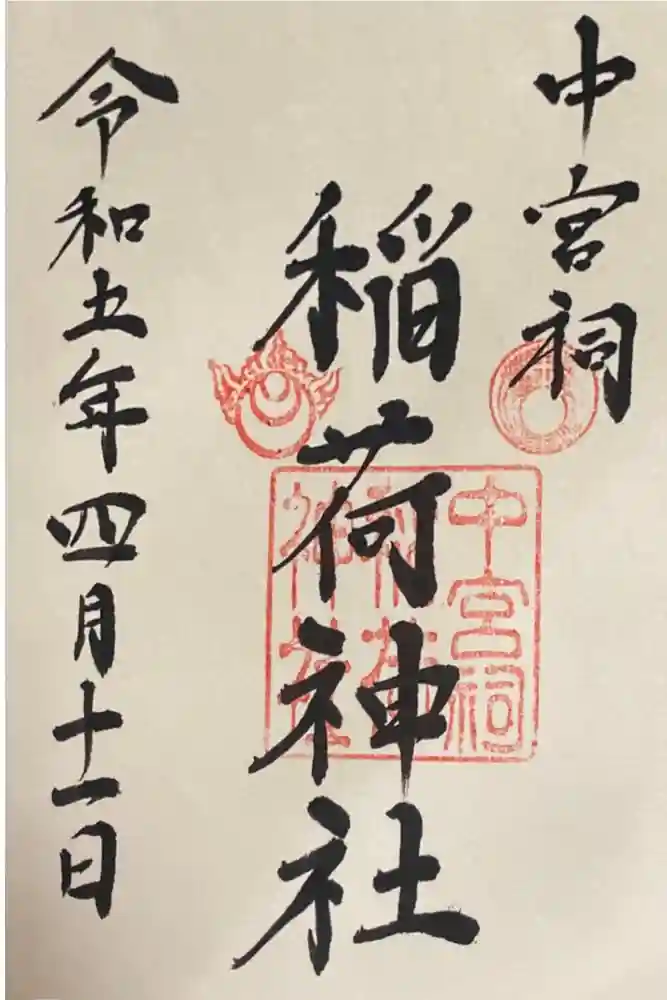 中宮祠
稲荷神社
令和五年四月十一日
中宮祠